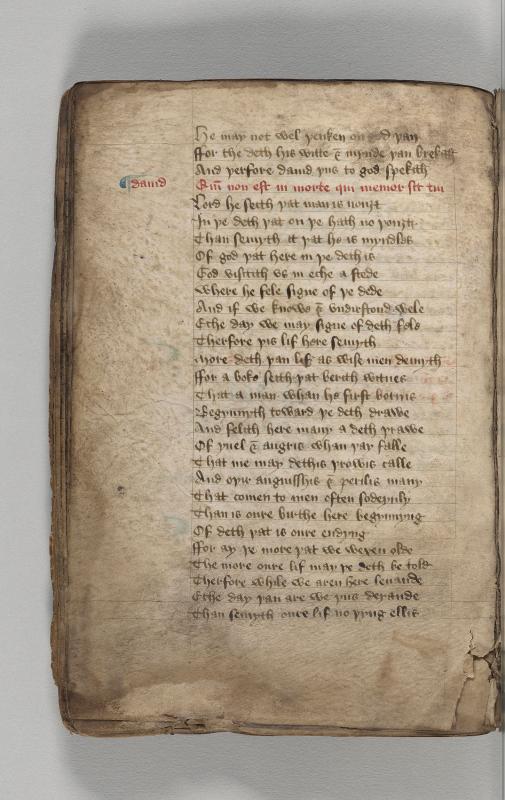 He may not wel þenken on god þan
ffor the deth his witte & mynde þan brekith
And þerfore dauid þus to god spekith
dauid
Qm̄ non est in morte qui memor sit tui
Lord he seith þat man is nouȝt
In þe deth þat on þe hath no þouȝt
Than semyth it þat he is myndles
Of god þat here in þe deth is
God visitith vs in eche a stede
Where he fele signe of þe dede
And if we knowe & vndirstond wele
Eche day we may signe of deth fele
Therfore þis lif here semyth
More deth þan lif as wise men demyth
ffor a boke seith þat berith witnes
That a man whan he first born is
Begynnyth toward þe deth drawe
And felith here many a deth þrawe
Of yuel & angris whan þay falle
That me may dethis þrowis calle
And oþir anguisshis & perilis many
That comen to men often sodeynly
Than is oure birthe here begynnyng
Of deth þat is oure endyng
ffor ay þe more þat we wexen olde
The more oure lif may þe deth be told
Therfore while we aren here leuande
Eche day þan are we þus deyande
Than semyth oure lif no þyng ellis